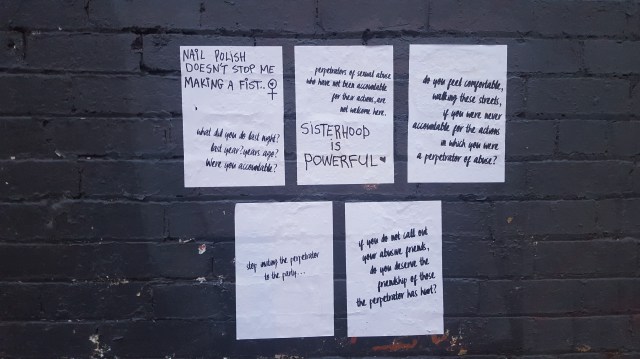 NAIL POLISH
DOESN'T STOP ME
MAKING A FIST.
what did you do last night?
last year? years ago?
Were you accountable?
perpetrators of sexual abuse
who have not been accountable
for their actions, are
not welcome here.
SISTERHOOD
IS
POWERFUL
do you feel comfortable,
walking these streets,
if you were never
accountable for the actions
in which you were
a perpetrator of abuse?
stop inviting the perpetrator
to the party...
if you do not call out
your abusive friends,
do you deserve the
friendship of those
the perpetrator has hurt?